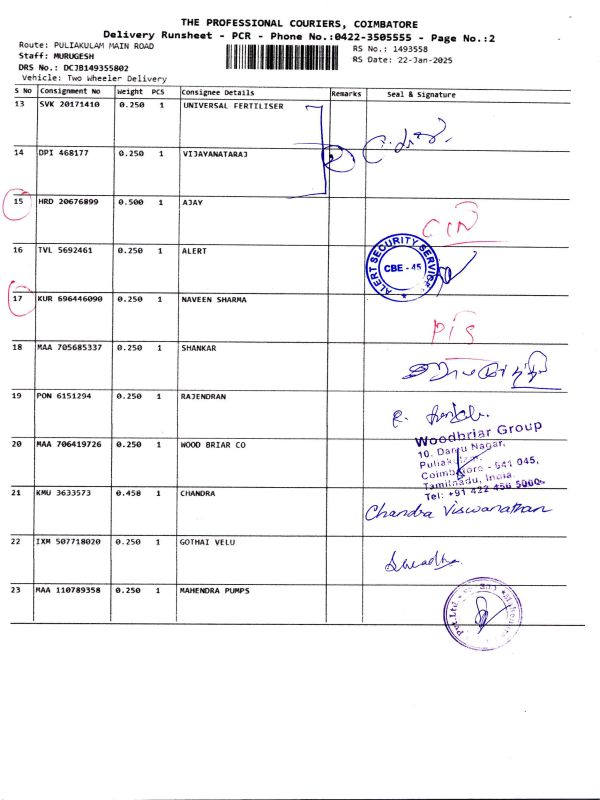 THE PROFESSIONAL COURIERS, COIMBATORE
Delivery Runsheet - PCR - Phone No.:0422-3505555 - Page No.:2
Route: PULIAKULAM MAIN ROAD
RS No.: 1493558
Staff: MURUGESH
RS Date: 22-Jan-2025
DRS No.: DCJB149355802
Vehicle: Two Wheeler Delivery
S No Consignment No Weight PCS Consignee Details Remarks Seal & Signature
13 SVK 20171410 0.250 1 UNIVERSAL FERTILISER
14 DPI 468177 0.250 1 VIJAYANATARAJ
15 HRD 20676899 0.500 1 AJAY
16 TVL 5692461 0.250 1 ALERT
ALERT SECURITY SERVICE
CBE - 45
17 KUR 696446090 0.250 1 NAVEEN SHARMA
18 MAA 705685337 0.250 1 SHANKAR
19 PON 6151294 0.250 1 RAJENDRAN
20 MAA 706419726 0.250 1 WOOD BRIAR CO
Woodbriar Group
Nagar,
Coimbatore - 641 045,
Tamilnadu, India.
Tel: +91 422 456 5060
21 KMU 3633573 0.458 1 CHANDRA
Chandra Viswanathan
22 IXM 507718020 0.250 1 GOTHAI VELU
23 MAA 110789358 0.250 1 MAHENDRA PUMPS
Pvt. Ltd.